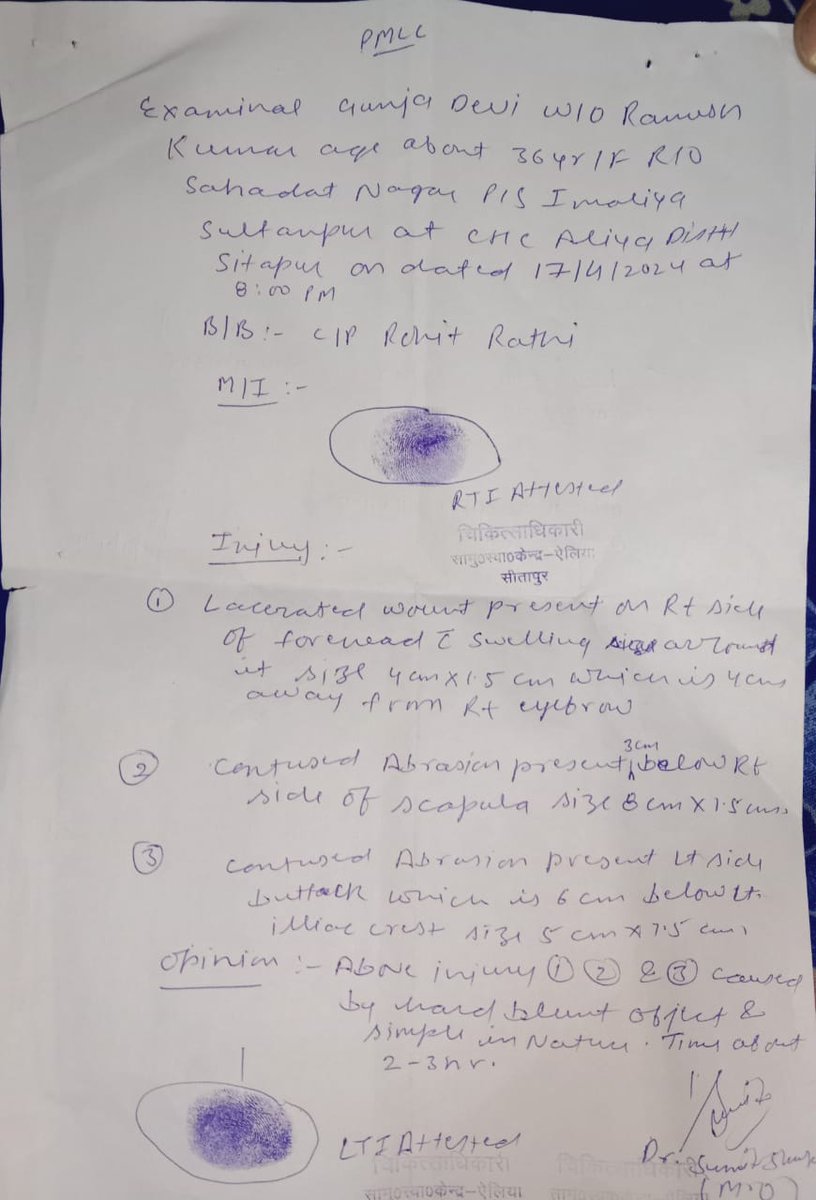 PMLC
Examinal Gunja Devi W/O Ramesh
Kumar age about 36yr/F R/O
Sahadat Nagar P/S Imaliya
Sultanpur at CHC Aliya Distt
Sitapur on dated 17/4/2024 at
8:00 PM
B/B:- C/P Rohit Rathi
M/I :-
RTI Attested
चिकित्साधिकारी
सामु०स्वा०केन्द्र-ऐलिया
सीतापुर
Injury :-
① Lacerated wount present on Rt side
of forehead c̄ swelling around
it size 4cm x 1.5 cm which is 4cm
away from Rt eyebrow
② Contused Abrasion present 3cm below Rt
side of scapula size 8cm x 1.5cm
③ Contused Abrasion present Lt side
buttack which is 6cm below Lt.
illiac crest size 5cm x 1.5 cm
Opinion :- Above injury ① ② & ③ caused
by hard blunt object &
simple in Nature. Time about
2-3hr.
LTI Attested
चिकित्साधिकारी
सामु०स्वा०केन्द्र-ऐलिया
चिकित्साधिकारी
Dr. Sumit
(M.O)